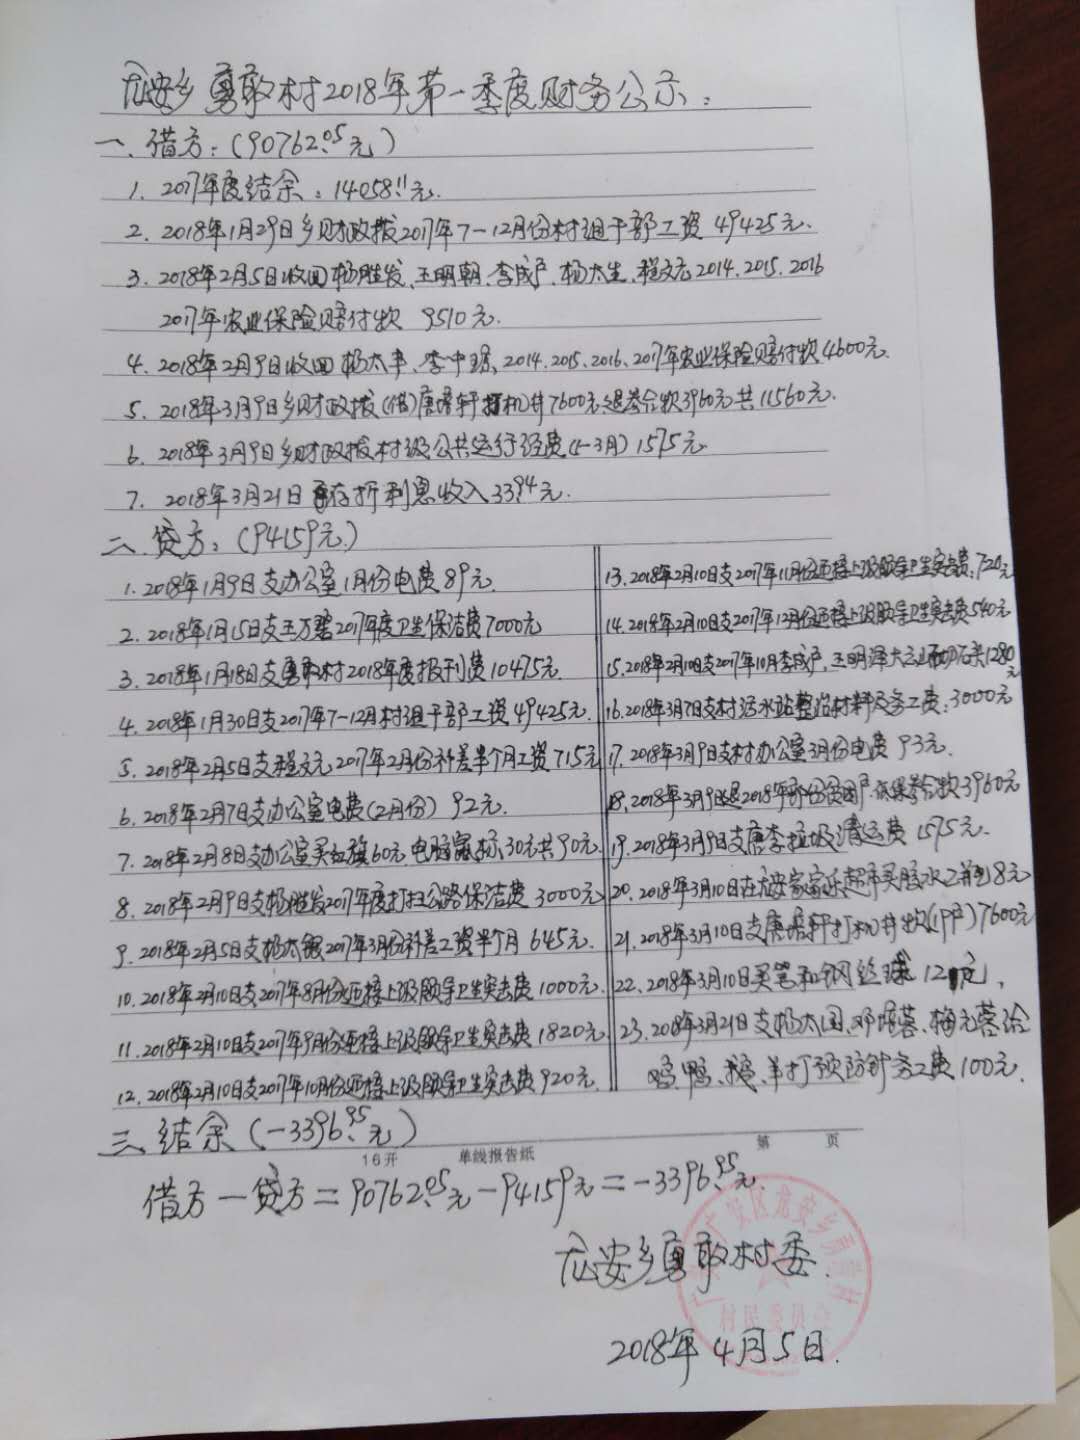 龙安乡勇敢村2018年第一季度财务公示:
一、借方:(90762.05元)
1. 2017年度结余:14058.11元.
2. 2018年1月29日乡财政拨2017年7-12月份村组干部工资 49425元.
3. 2018年2月5日收回杨胜发、王明朝、李成户、杨太生、程文元2014.2015.2016
2017年农业保险赔付款 9510元.
4. 2018年2月9日收回杨太丰、李中琼、2014.2015.2016、2017年农业保险赔付款4600元.
5. 2018年3月9日乡财政拨(借)唐绪轩打机井7600元退参合款3960元共11560元.
6. 2018年3月9日乡财政拨村级公共运行经费(1-3月)1575元
7. 2018年3月21日存折利息收入33.94元.
二、贷方:(94159元)
1. 2018年1月9日支办公室1月份电费89元.
2. 2018年1月15日支王万碧2017年度卫生保洁费7000元
3. 2018年1月18日支勇敢村2018年度报刊费10475元.
4. 2018年1月30日支2017年7-12月村组干部工资49425元.
5. 2018年2月5日支程文元2017年2月份补差半个月工资715元
6. 2018年2月7日支办公室电费(2月份) 92元.
7. 2018年2月8日支办公室买红旗60元 电脑鼠标30元共90元.
8. 2018年2月9日支杨胜发2017年度打扫公路保洁费 3000元
9. 2018年2月5日支杨太银2017年3月份补差工资半个月 645元.
10. 2018年2月10日支2017年8月份迎接上级领导卫生突击费1000元.
11. 2018年2月10日支2017年9月份迎接上级领导卫生突击费1820元
12. 2018年2月10日支2017年10月份迎接上级领导卫生突击费920元.
13. 2018年2月10日支2017年11月份迎接上级领导卫生突击费:720元
14. 2018年2月10日支2017年12月份迎接上级领导卫生突击费540元
15. 2018年2月10日支2017年10月李成户、王明泽大云山石1280元
16. 2018年3月7日支村污水站整治材料及务工费:3000元
17. 2018年3月9日支村办公室3月份电费 93元.
18. 2018年3月9日退2018年部份贫困户、低保参合款3960元
19. 2018年3月9日支唐李垃圾清运费 1575元.
20. 2018年3月10日在龙安家家乐超市买胶水2瓶8元
21. 2018年3月10日支唐绪轩打机井款(1户)7600元
22. 2018年3月10日买笔和钢丝球 12元.
23. 2018年3月21日支杨太国、邓增蓉、梅元蓉给
鸡、鸭、鹅、羊打预防针务工费100元.
三、结余(-3396.95元)
16开 单线报告纸 第 页
借方-贷方=90762.05元-94159元=-3396.95元.
龙安乡勇敢村委.
广安区龙安乡勇敢村
村民委员会
2018年4月5日.